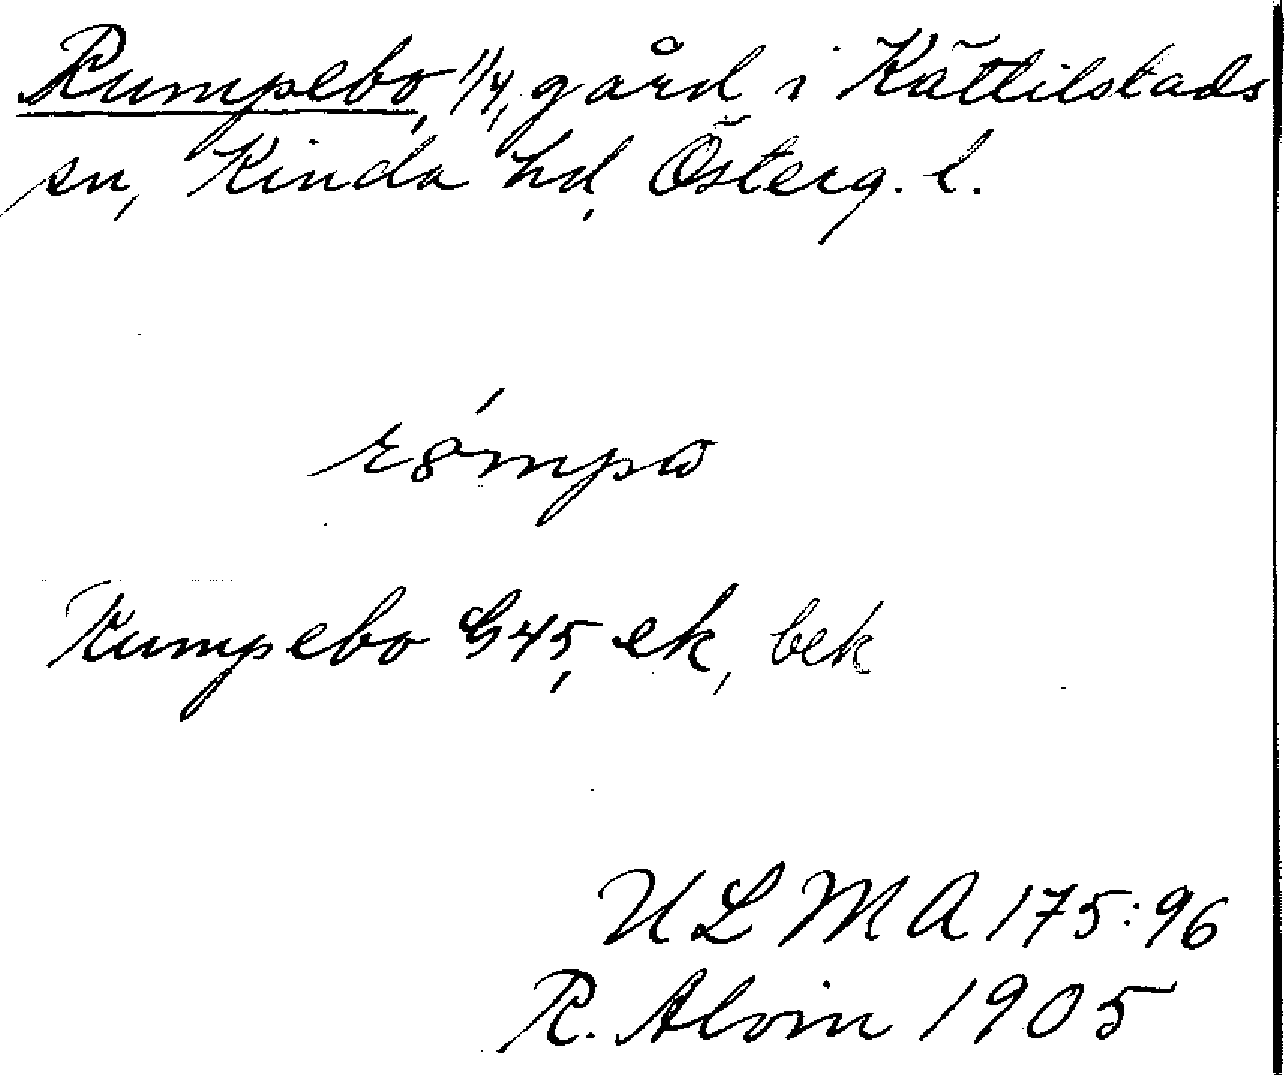 Rumpebo, 1/4, gård i Kättilstads
sn, Kinda hd, Österg. l.
Rumpebo G45, ek, bek
ULMA 175:96
R. Alvin 1905